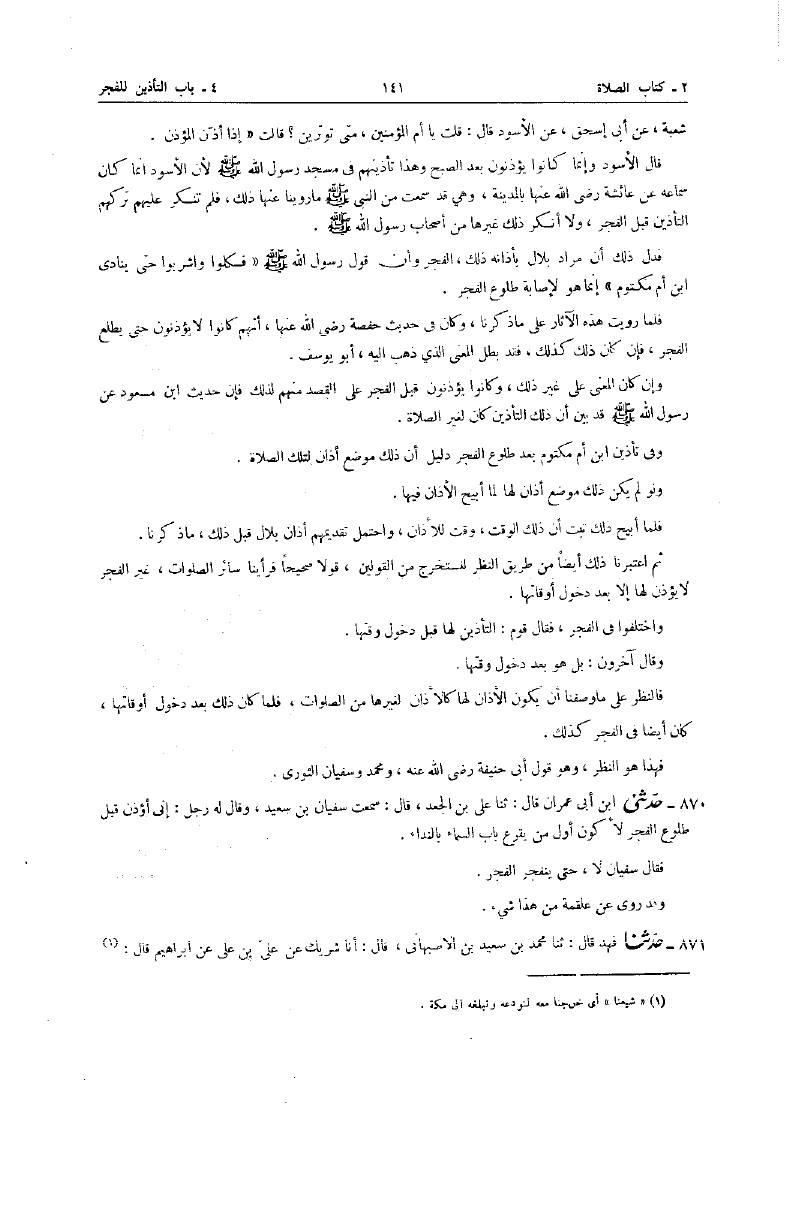 ٢ - كتاب الصلاة ١٤١ ٤ - باب التأذين للفجر
شعبة ، عن أبى إسحق ، عن الأسود قال : قلت يا أم المؤمنين ، متى توترين ؟ قالت « إذا أذّن المؤذن .
قال الأسود وإنما كانوا يؤذنون بعد الصبح وهذا تأذينهم فى مسجد رسول الله ﷺ لأن الأسود انما كان
سماعه عن عائشة رضى الله عنها بالمدينة ، وهي قد سمعت من النبى ﷺ ماروينا عنها ذلك ، فلم تنكر عليهم تركهم
التأذين قبل الفجر ، ولا أنكر ذلك غيرها من أصحاب رسول الله ﷺ .
فدل ذلك أن مراد بلال بأذانه ذلك ، الفجر وأن قول رسول الله ﷺ « فكلوا واشربوا حتى ينادى
ابن أم مكتوم » إنما هو لإصابة طلوع الفجر .
فلما رويت هذه الآثار على ماذكرنا ، وكان فى حديث حفصة رضى الله عنها ، أنهم كانوا لا يؤذنون حتى يطلع
الفجر ، فإن كان ذلك كذلك ، فقد بطل المعنى الذي ذهب اليه ، أبو يوسف .
وإن كان المعنى على غير ذلك ، وكانوا يؤذنون قبل الفجر على القصد منهم لذلك فإن حديث ابن مسعود عن
رسول الله ﷺ قد بين أن ذلك التأذين كان لغير الصلاة .
وفى تأذين ابن أم مكتوم بعد طلوع الفجر دليل أن ذلك موضع أذان لتلك الصلاة .
ولو لم يكن ذلك موضع أذان لها لما أبيح الأذان فيها .
فلما أبيح ذلك ثبت أن ذلك الوقت ، وقت للأذان ، واحتمل تقديمهم أذان بلال قبل ذلك ، ماذكرنا .
ثم اعتبرنا ذلك أيضاً من طريق النظر لنستخرج من القولين ، قولا صحيحاً فرأينا سائر الصلوات ، غير الفجر
لا يؤذن لها إلا بعد دخول أوقاتها .
واختلفوا فى الفجر ، فقال قوم : التأذين لها قبل دخول وقتها .
وقال آخرون : بل هو بعد دخول وقتها .
فالنظر على ماوصفنا أن يكون الأذان لها كالأذان لغيرها من الصلوات ، فلما كان ذلك بعد دخول أوقاتها ،
كان أيضا فى الفجر كذلك .
فهذا هو النظر ، وهو قول أبى حنيفة رضى الله عنه ، ومحمد وسفيان الثورى .
٨٧٠ - حدثنى ابن أبى عمران قال : ثنا على بن الجعد ، قال : سمعت سفيان بن سعيد ، وقال له رجل : إنى أؤذن قبل
طلوع الفجر لأكون أول من يقرع باب السماء بالنداء .
فقال سفيان لا ، حتى ينفجر الفجر .
وقد روى عن علقمة من هذا شيء .
٨٧١ - حدثنا فهد قال : ثنا محمد بن سعيد بن الاصبهانى ، قال : أنا شريك عن علىّ بن على عن ابراهيم قال : (١)
(١) « شيعنا » أى خرجنا معه لنودعه ونبلغه الى مكة .